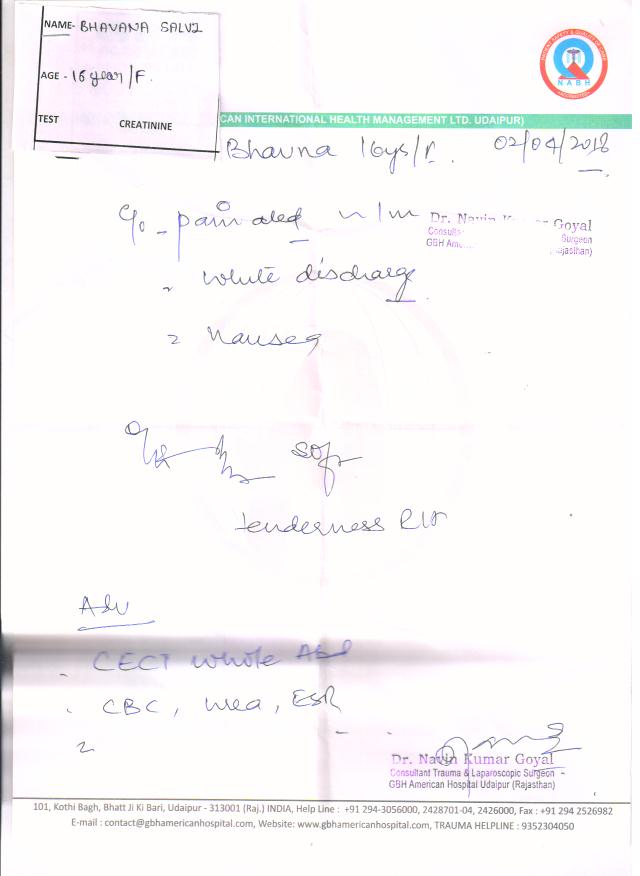 NAME- BHAVANA SALVI
AGE - 16 year/F.
TEST CREATININE
PATIENT SAFETY & QUALITY OF CARE
NABH
ACCREDITATION
CAN INTERNATIONAL HEALTH MANAGEMENT LTD. UDAIPUR)
Bhavna 16ys/F. 02/04/2018
C/o - pain abd
Dr. Navin Kumar Goyal
Surgeon
GBH Ame
- white discharge
- Nausea
O/E soft
tenderness RIF
Adv
CECT whole Abd
CBC, Urea, ESR
Dr. Navin Kumar Goyal
Consultant Trauma & Laparoscopic Surgeon
GBH American Hospital Udaipur (Rajasthan)
101, Kothi Bagh, Bhatt Ji Ki Bari, Udaipur - 313001 (Raj.) INDIA, Help Line : +91 294-3056000, 2428701-04, 2426000, Fax : +91 294 2526982
E-mail : contact@gbhamericanhospital.com, Website: www.gbhamericanhospital.com, TRAUMA HELPLINE : 9352304050